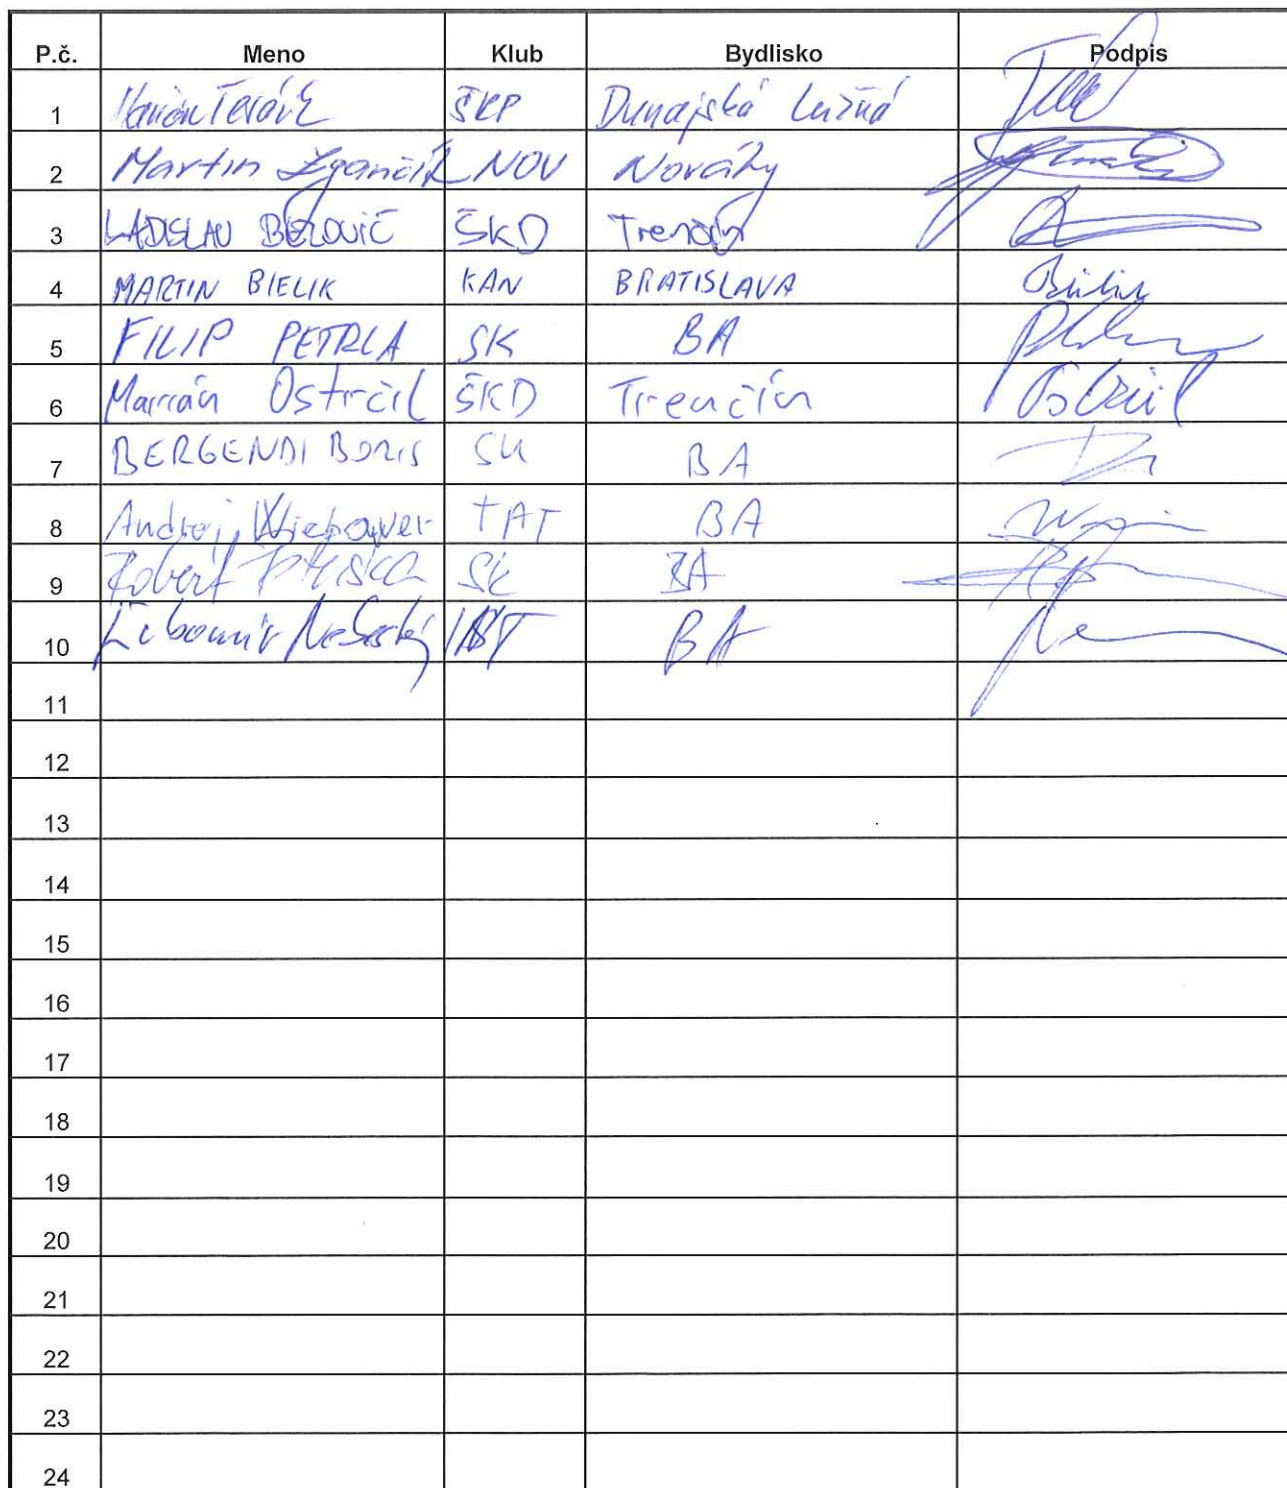 P.č. Meno Klub Bydlisko Podpis
1 Marián Teráz ŠKP Dunajská Lužná
2 Martin Žgančík NOV Nováky
3 LADISLAV BEZOVIČ ŠKD Trenčín
4 MARTIN BIELIK KAN BRATISLAVA
5 FILIP PETRLA SK BA
6 Marián Ostrčil ŠKD Trenčín Ostrčil
7 BERGENDI BORIS SK BA
8 Andrej TAT BA
9 Robert SK BA
10 Ľubomír BA
11
12
13
14
15
16
17
18
19
20
21
22
23
24